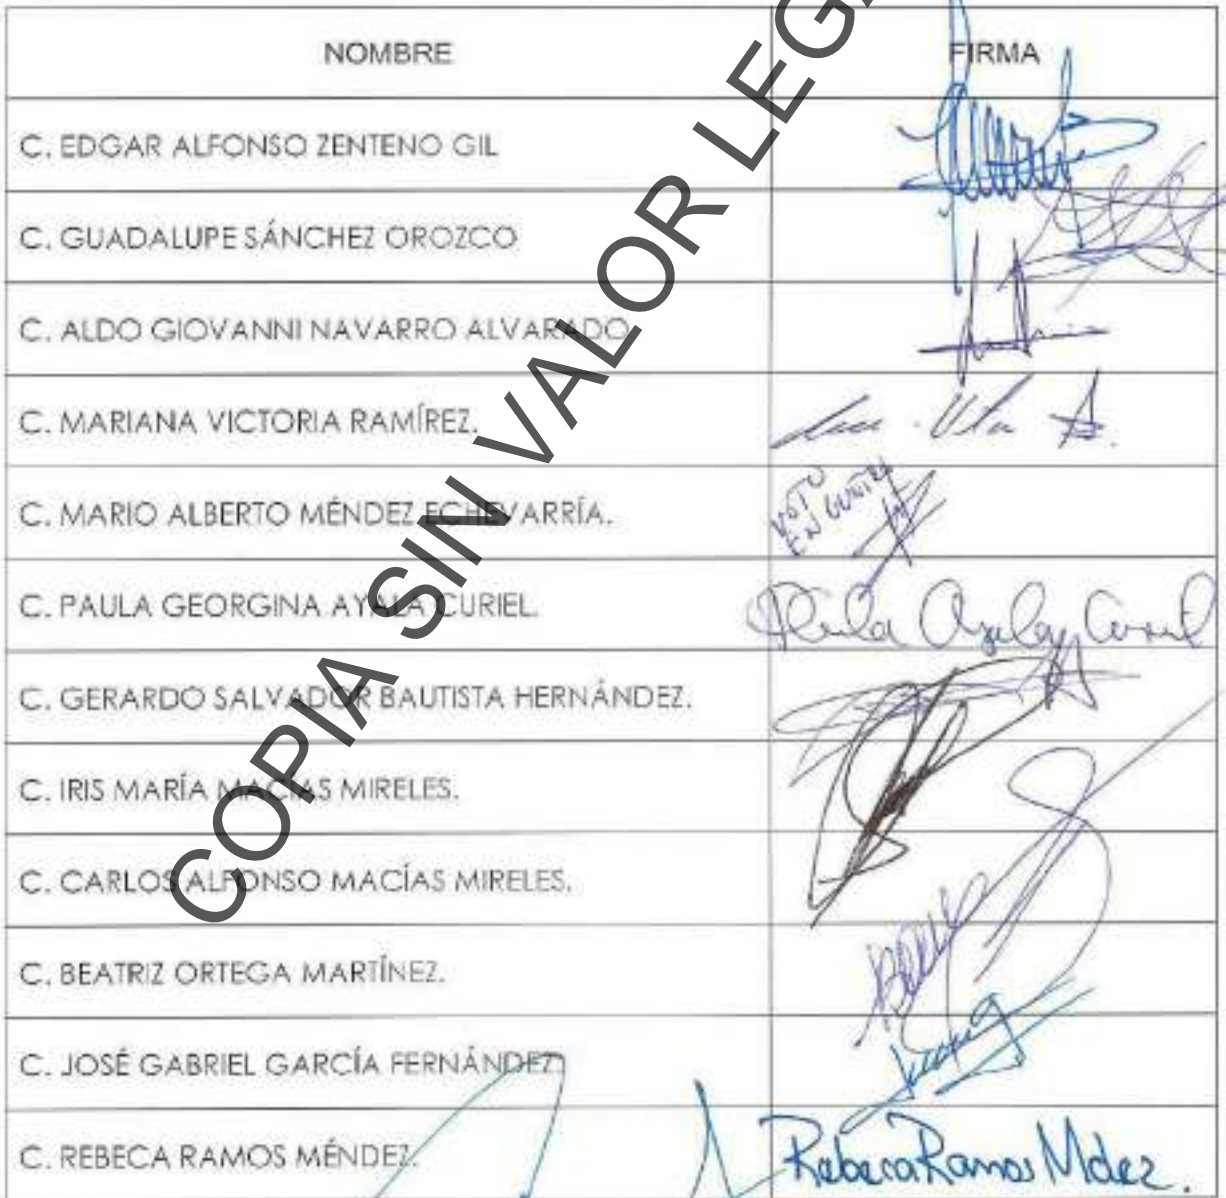 NOMBRE FIRMA
C. EDGAR ALFONSO ZENTENO GIL
C. GUADALUPE SÁNCHEZ OROZCO
C. ALDO GIOVANNI NAVARRO ALVARADO
C. MARIANA VICTORIA RAMÍREZ.
C. MARIO ALBERTO MÉNDEZ ECHEVARRÍA. VOTO
EN CONTRA
C. PAULA GEORGINA AYALA CURIEL. Paula Ayala Curiel
C. GERARDO SALVADOR BAUTISTA HERNÁNDEZ.
C. IRIS MARÍA MACÍAS MIRELES.
C. CARLOS ALFONSO MACÍAS MIRELES.
C. BEATRIZ ORTEGA MARTÍNEZ.
C. JOSÉ GABRIEL GARCÍA FERNÁNDEZ
C. REBECA RAMOS MÉNDEZ. Rebeca Ramos Mdez.
COPIA SIN VALOR